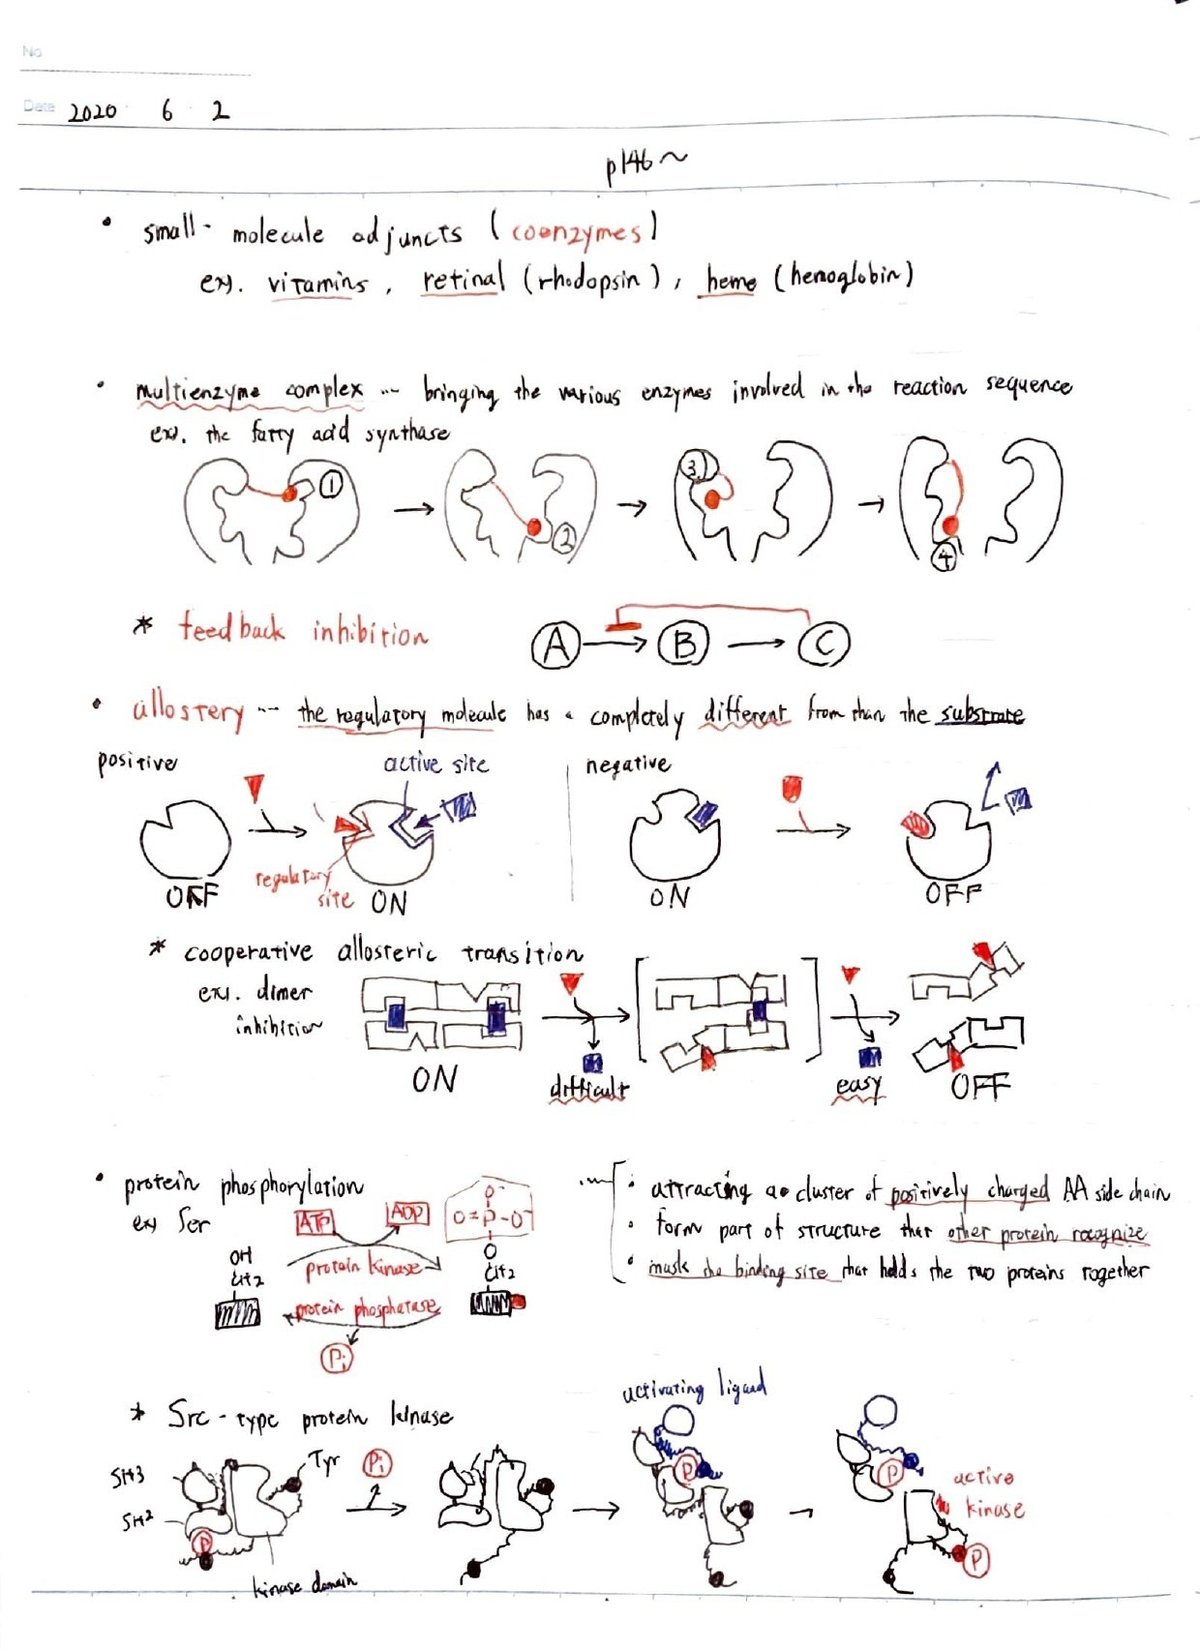 No
Date 2020 6 2
p146~
• small-molecule adjuncts (coenzymes)
ex. vitamins, retinal (rhodopsin), heme (hemoglobin)
• multienzyme complex ... bringing the various enzymes involved in the reaction sequence
ex. the fatty acid synthase
① → ② → ③ → ④
* feedback inhibition A → B → C
• allostery ... the regulatory molecule has a completely different from than the substrate
positive active site negative
regulatory
site
OFF ON ON OFF
* cooperative allosteric transition
ex. dimer
inhibition
ON difficult easy OFF
• protein phosphorylation
ex Ser
ATP ADP
O⁻
O=P-O⁻
O
CH2
OH
CH2
protein kinase
protein phosphatase
Pi
• attracting a cluster of positively charged AA side chain
• form part of structure that other protein recognize
• mask the binding site that holds the two proteins together
* Src-type protein kinase
activating ligand
SH3
SH2
Tyr
Pi
P
P
P
active
kinase
P
kinase domain